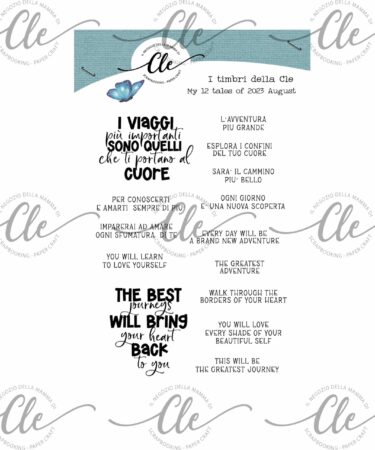 IL NEGOZIO DELLA MAMMA DI
Cle
SCRAPBOOKING - PAPER CRAFT
I timbri della Cle
My 12 tales of 2023 August
I VIAGGI
più importanti
SONO QUELLI
che ti portano al
CUORE
PER CONOSCERTI
E AMARTI SEMPRE DI PIÙ
IMPARERAI AD AMARE
OGNI SFUMATURA DI TE
YOU WILL LEARN
TO LOVE YOURSELF
THE BEST
journeys
WILL BRING
your heart
BACK
to you
L'AVVENTURA
PIÙ GRANDE
ESPLORA I CONFINI
DEL TUO CUORE
SARA' IL CAMMINO
PIU' BELLO
OGNI GIORNO
E' UNA NUOVA SCOPERTA
EVERY DAY WILL BE
A BRAND NEW ADVENTURE
THE GREATEST
ADVENTURE
WALK THROUGH THE
BORDERS OF YOUR HEART
YOU WILL LOVE
EVERY SHADE OF YOUR
BEAUTIFUL SELF
THIS WILL BE
THE GREATEST JOURNEY